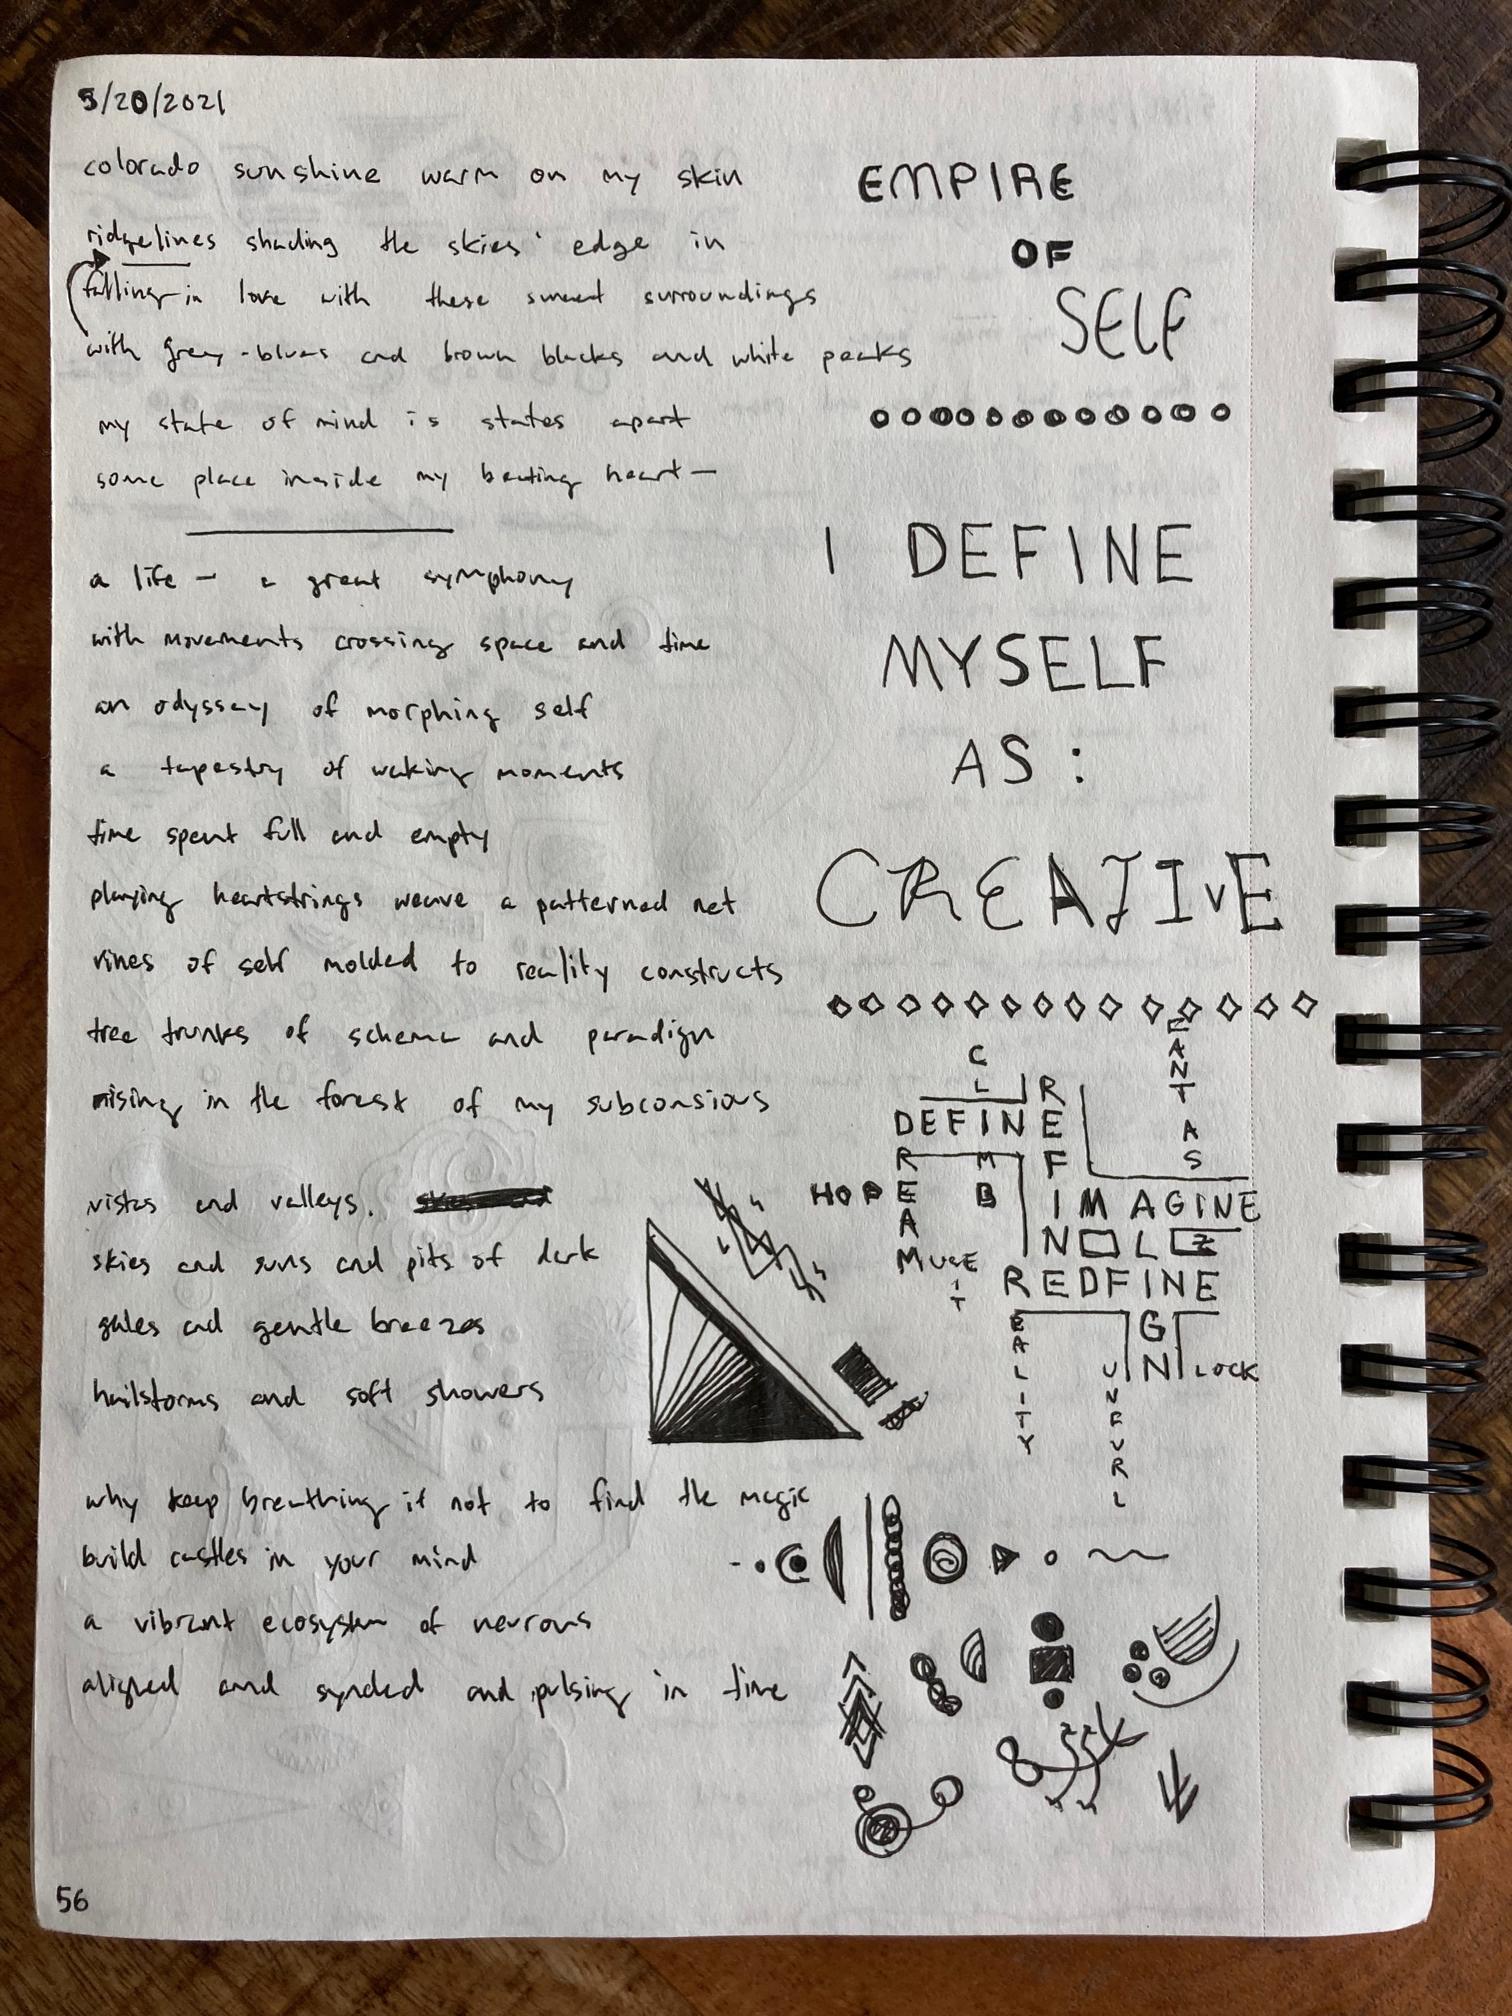 5/20/2021
colorado sunshine warm on my skin
ridgelines shading the skies' edge in
falling in love with these surroundings
with grey-blues and brown blacks and white peaks
my state of mind is states apart
some place inside my beating heart—
a life — a great symphony
with movements crossing space and time
an odyssey of morphing self
a tapestry of waking moments
time spent full and empty
playing heartstrings weave a patterned net
vines of self molded to reality constructs
tree trunks of schema and paradigm
rising in the forest of my subconsious
vistas and valleys.
skies and suns and pits of dark
gales and gentle breezes
hailstorms and soft showers
why keep breathing if not to find the magic
build castles in your mind
a vibrant ecosystem of neurons
aligned and syncced and pulsing in time
56
EMPIRE
OF
SELF
I DEFINE
MYSELF
AS:
CREATIVE
CLIMB
DEFINE
REFINE
FANTASIZE
DREAM
HOPE
IMAGINE
MUSE
IT
REDFINE
REALITY
REIGN
UNFURL
UNLOCK